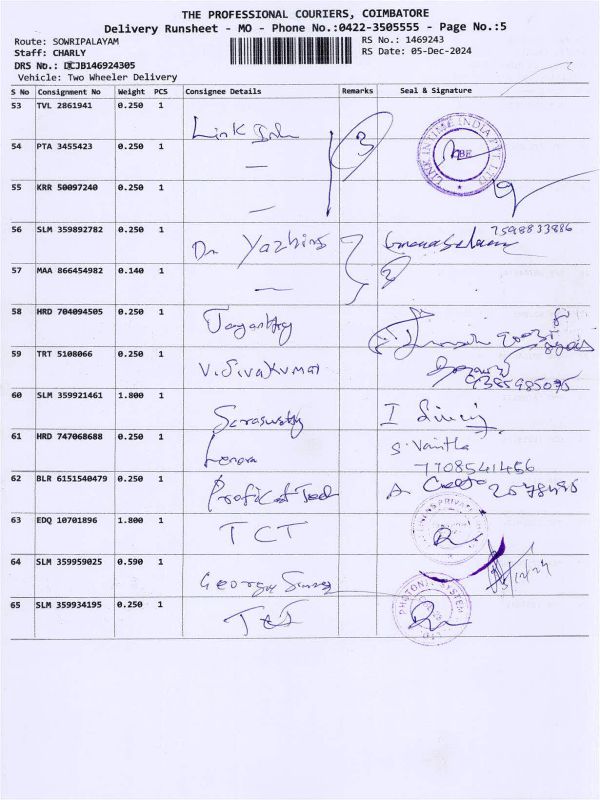 THE PROFESSIONAL COURIERS, COIMBATORE
Delivery Runsheet - MO - Phone No.:0422-3505555 - Page No.:5
Route: SOWRIPALAYAM RS No.: 1469243
Staff: CHARLY RS Date: 05-Dec-2024
DRS No.: DCJB146924305
Vehicle: Two Wheeler Delivery
S No Consignment No Weight PCS Consignee Details Remarks Seal & Signature
53 TVL 2861941 0.250 1 Link
3 LINK INTIME INDIA PVT LTD CBE
54 PTA 3455423 0.250 1 —
55 KRR 50097240 0.250 1 —
7598833886
56 SLM 359892782 0.250 1 Dr Yazhini
57 MAA 866454982 0.140 1 — 2
58 HRD 704094505 0.250 1
59 TRT 5108066 0.250 1 V. Sivakumar
9385985095
60 SLM 359921461 1.800 1 Saraswathy
61 HRD 747068688 0.250 1 Lenora S. Vanitha
7708541456
62 BLR 6151540479 0.250 1
63 EDQ 10701896 1.800 1 TCT
64 SLM 359959025 0.590 1 George
65 SLM 359934195 0.250 1 PHOTONI SYSTEM